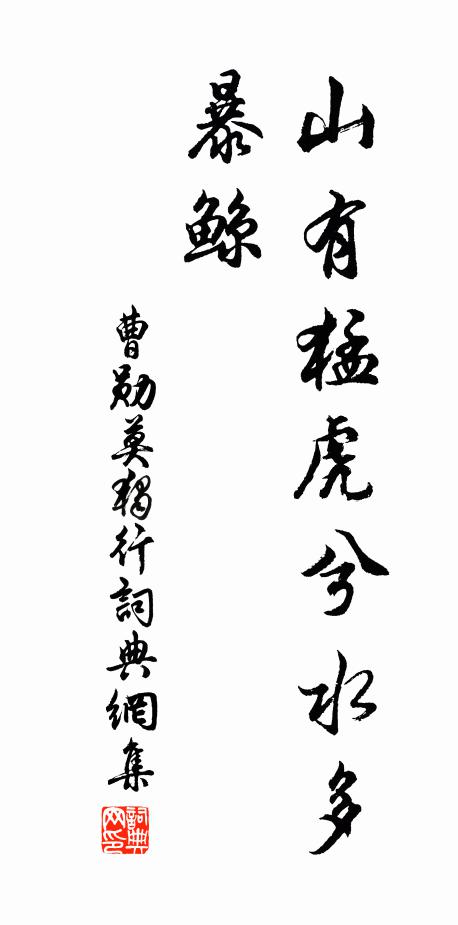 山有猛虎兮水多
暴鲸
曹勋莫独行詞典網集
詞典网印